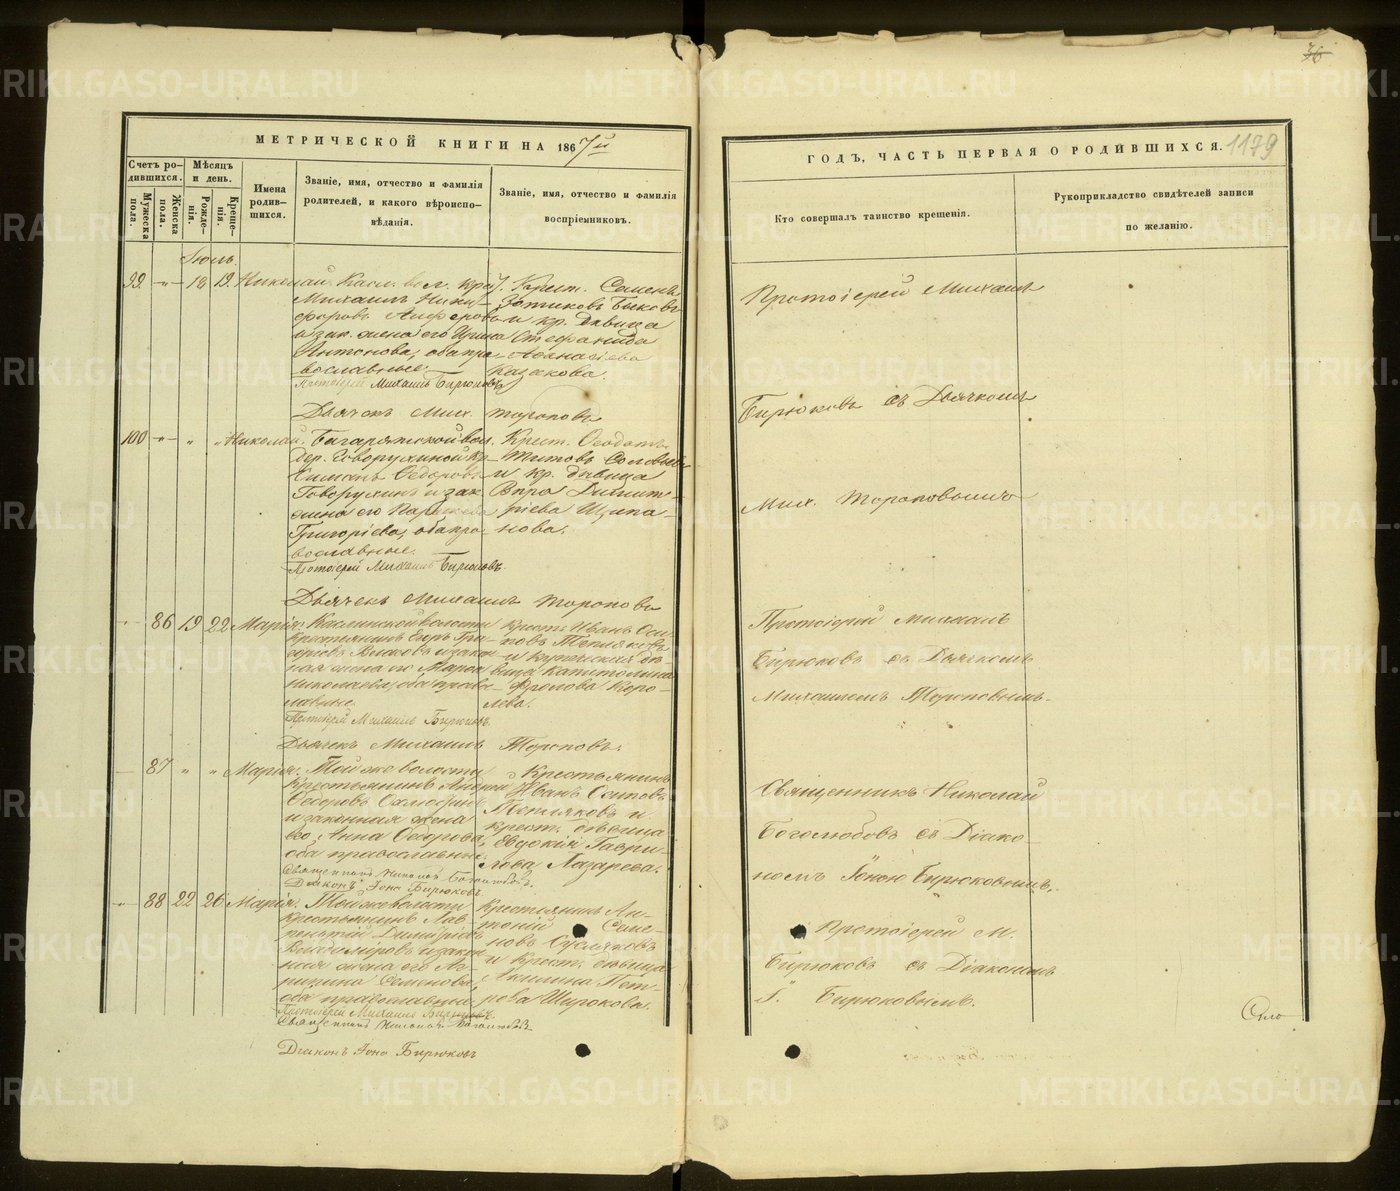 36
МЕТРИЧЕСКОЙ КНИГИ НА 1867й
ГОДЪ, ЧАСТЬ ПЕРВАЯ О РОДИВШИХСЯ. 1179
Счетъ ро-
дившихся.
Мужеска
пола.
Женска
пола.
Мѣсяцъ
и день.
Рожде-
нія.
Креще-
нія.
Имена
родив-
шихся.
Званіе, имя, отчество и фамилія
родителей, и какого вѣроиспо-
вѣданія.
Званіе, имя, отчество и фамилія
воспріемниковъ.
Кто совершалъ таинство крещенія.
Рукоприкладство свидѣтелей записи
по желанію.
Іюль.
99 " 18 19 Николай
Касл. вол. кр.
Михаилъ Ники-
форовъ Алферовъ
и зак. жена его Ирина
Антонова, оба пра-
вославные.
Протоіерей Михаилъ Бирюковъ
Дьячекъ Мих. Тороповъ
Крест. Семенъ
Зотиковъ Быковъ
и кр. дѣвица
Стефанида
Аѳанасіева
Казакова.
Протоіерей Михаилъ
Бирюковъ съ Дьячкомъ
Мих. Тороповымъ
100 " " " Николай.
Багарятской вол.
дер. Говорухиной кр.
Ѳедоровъ
Говорухинъ и зак.
жена его
Григоріева, оба пра-
вославные.
Протоіерей Михаилъ Бирюковъ.
Дьячекъ Михаилъ Тороповъ
Крест. Ѳеодотъ
Титовъ Соловьевъ
и кр. дѣвица
Вѣра Димит-
ріева Щипа-
нова.
" 86 19 22 Марія.
Каслинской волости
крестьянинъ Егоръ Гри-
горьевъ и закон-
ная жена его Марѳа
Николаева, оба право-
славные.
Протоіерей Михаилъ Бирюковъ.
Дьячекъ Михаилъ Тороповъ.
Крест. Иванъ Оси-
повъ Тепляковъ
и купеческая дѣ-
вица Капитолина
Фролова Коро-
лева.
Протоіерей Михаилъ
Бирюковъ съ Дьячкомъ
Михаиломъ Тороповымъ.
87 " " Марія.
Той же волости
крестьянинъ Андрей
Ѳедоровъ
и законная жена
его Анна Ѳедорова,
оба православные.
Священникъ Николай Боголюбовъ.
Діаконъ Іона Бирюковъ
Крестьянинъ
Иванъ Осиповъ
Тепляковъ и
крест. дѣвица
Евдокія Гаври-
лова Лазарева.
Священникъ Николай
Боголюбовъ съ Діако-
номъ Іоною Бирюковымъ.
" 88 22 26 Марія.
Той же волости
крестьянинъ Лав-
рентій Димитріевъ
и закон-
ная жена его Аг-
рипина Семенова,
оба православные.
Протоіерей Михаилъ Бирюковъ.
Священникъ Николай Боголюбовъ
Діаконъ Іона Бирюковъ
Крестьянинъ Ан-
тоній Семе-
новъ Сусляковъ
и крест. дѣвица
Акилина Пет-
рова Широкова.
Протоіерей М.
Бирюковъ съ Діакономъ
І. Бирюковымъ.
METRIKI.GASO-URAL.RU